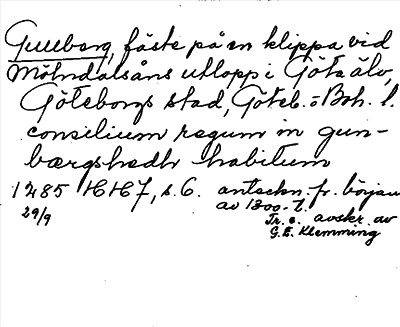 Gullberg, fäste på en klippa vid
Mölndalsåns utlopp i Göta älv,
Göteborgs stad, Göteb. o Boh. l.
consilium regum in gun-
bærgshedh habitum
1285 HH7, s. 6. anteckn. fr. början
av 1300-t.
29/9
Tr. e. avskr. av
G. E. Klemming